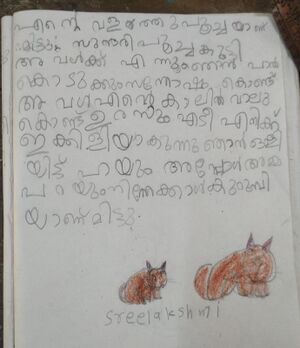 എന്റെ വളർത്തുപൂച്ചയാണ്
മിട്ടു സുന്ദരിപൂച്ചകുട്ടി
അവൾക്ക് എന്നുംഞാൻ പാൽ
കൊടുക്കുംസന്തോഷം കൊണ്ട്
അവൾഎന്റെകാലിൽ വാലു
കൊണ്ട് ഉരസും എനിക്ക്
ഇക്കിളിയാകുന്നുഞാൻ
യിട്ട് പറയും അപ്പോൾഅമ്മ
പറയുംനിന്നേക്കാൾകുറുമ്പി
യാണ്മിട്ടു.
sreelakshmi